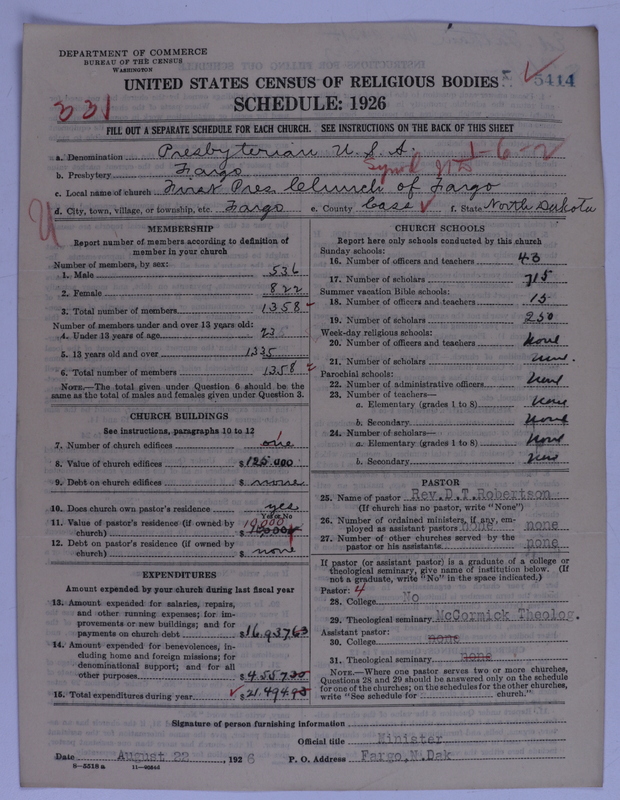 DEPARTMENT OF COMMERCE
BUREAU OF THE CENSUS
WASHINGTON
UNITED STATES CENSUS OF RELIGIOUS BODIES
5414
331
SCHEDULE: 1926
FILL OUT A SEPARATE SCHEDULE FOR EACH CHURCH. SEE INSTRUCTIONS ON THE BACK OF THIS SHEET
a. Denomination Presbyterian U.S.A. 1-6-2
b. Presbytery Fargo Synod ND
c. Local name of church First Pres Church of Fargo
d. City, town, village, or township, etc. Fargo e. County Cass f. State North Dakota
U
MEMBERSHIP
Report number of members according to definition of
member in your church
Number of members, by sex:
1. Male 536
2. Female 822
3. Total number of members 1358
Number of members under and over 13 years old:
4. Under 13 years of age 23
5. 13 years old and over 1335
6. Total number of members 1358
NOTE.—The total given under Question 6 should be the
same as the total of males and females given under Question 3.
CHURCH BUILDINGS
See instructions, paragraphs 10 to 12
7. Number of church edifices one
8. Value of church edifices $125.000
9. Debt on church edifices $ none
10. Does church own pastor's residence yes
Yes or No
11. Value of pastor's residence (if owned by 10,000
church) $
12. Debt on pastor's residence (if owned by
church) $ none
EXPENDITURES
Amount expended by your church during last fiscal year
13. Amount expended for salaries, repairs,
and other running expenses; for im-
provements or new buildings; and for
payments on church debt $16.937.63
14. Amount expended for benevolences, in-
cluding home and foreign missions; for
denominational support; and for all
other purposes $4.557.30
15. Total expenditures during year $21.494.93
CHURCH SCHOOLS
Report here only schools conducted by this church
Sunday schools:
16. Number of officers and teachers 43
17. Number of scholars 715
Summer vacation Bible schools:
18. Number of officers and teachers 15
19. Number of scholars 250
Week-day religious schools:
20. Number of officers and teachers None
21. Number of scholars None.
Parochial schools:
22. Number of administrative officers None
23. Number of teachers—
a. Elementary (grades 1 to 8) None
b. Secondary None
24. Number of scholars—
a. Elementary (grades 1 to 8) None
b. Secondary None
PASTOR
25. Name of pastor Rev.D.T.Robertson
(If church has no pastor, write "None")
26. Number of ordained ministers, if any, em-
ployed as assistant pastors none none
27. Number of other churches served by the
pastor or his assistants none
If pastor (or assistant pastor) is a graduate of a college or
theological seminary, give name of institution below. (If
not a graduate, write "No" in the space indicated.)
Pastor: 4
28. College No
29. Theological seminary McCormick Theolog.
Assistant pastor:
30. College none
31. Theological seminary none
NOTE.—Where one pastor serves two or more churches,
Questions 28 and 29 should be answered only on the schedule
for one of the churches; on the schedules for the other churches,
write "See schedule for church."
Signature of person furnishing information
Official title Minister
Date August 22, 1926 P. O. Address Fargo,N.Dak
8—5518 a